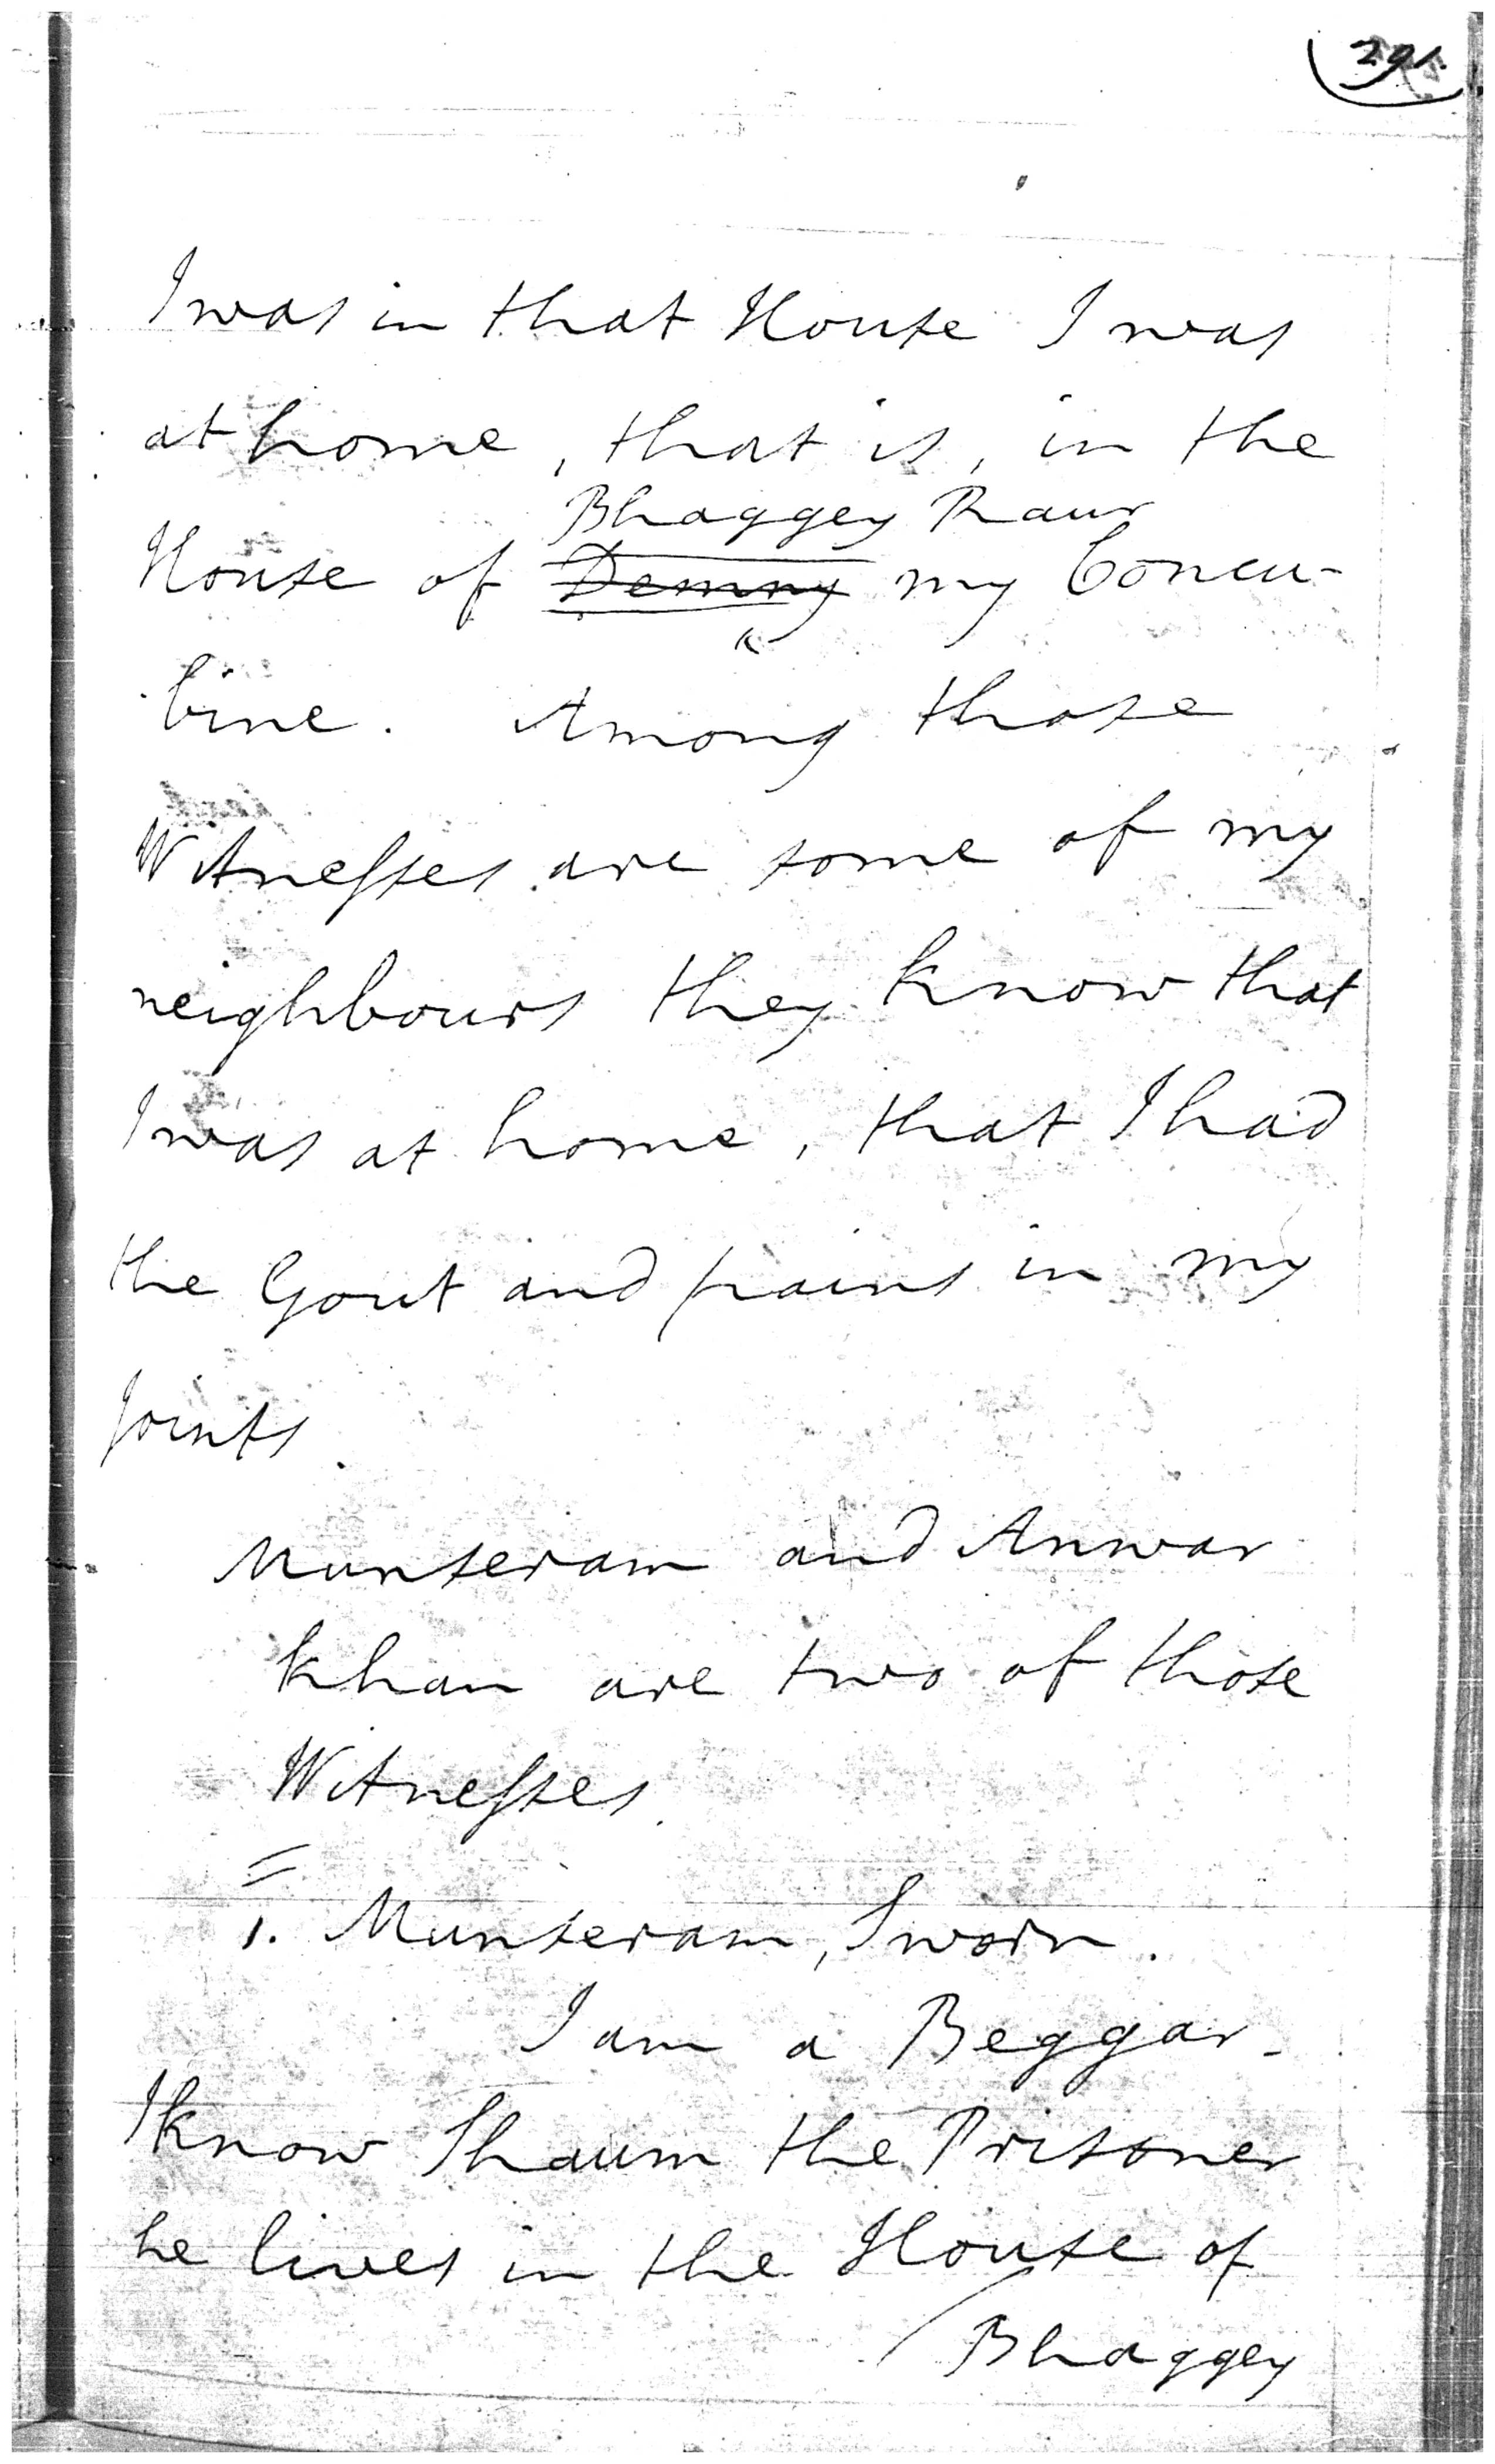 291.
I was in that House I was
at home, that is, in the
Bhaggey Raur
House of Demny my Concu-
bine. Among those
Witnesses are some of my
neighbours they know that
I was at home, that I had
the Gout and pains in my
Joints.
Munseram and Anwar
Khan are two of those
Witnesses.
1. Munseram, Sworn.
I am a Beggar.
I know Shaum the Prisoner
he lives in the House of
Bhaggey